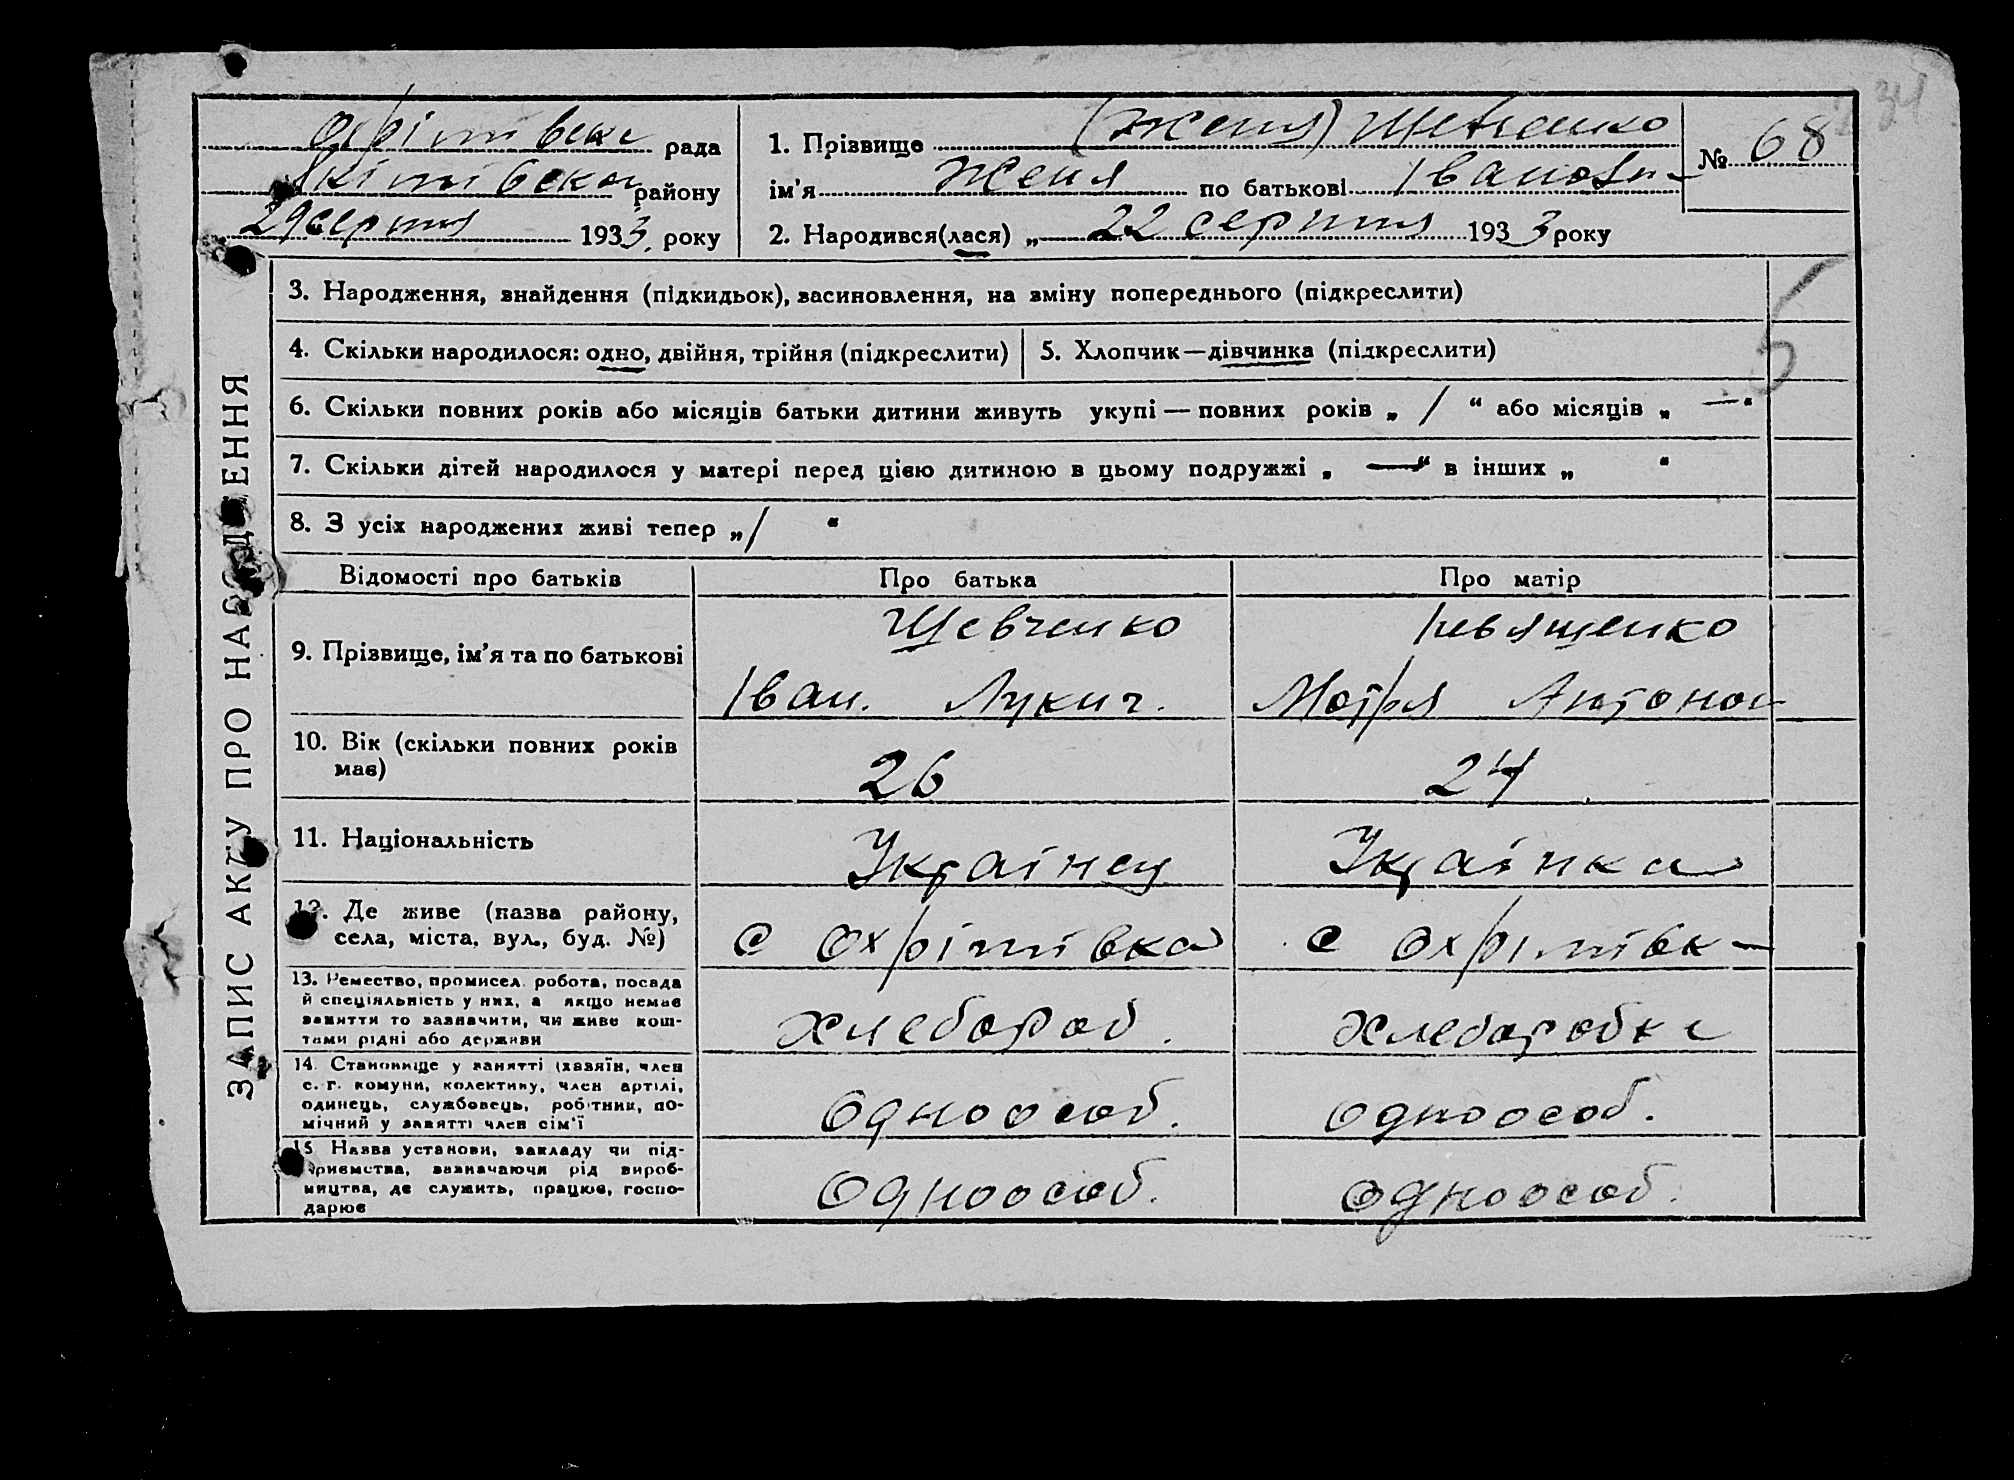 34
рада
району
29 серпня 1933 року
1. Прізвище (Женя) Шевченко
ім'я Женя по батькові Івановн
2. Народився(лася) „ 22 серпня 1933 року
№ 68
ЗАПИС АКТУ ПРО НАРОДЖЕННЯ
3. Народження, знайдення (підкидьок), засиновлення, на зміну попереднього (підкреслити)
4. Скільки народилося: одно, двійня, трійня (підкреслити)
5. Хлопчик—дівчинка (підкреслити)
5
6. Скільки повних років або місяців батьки дитини живуть укупі — повних років „ / “ або місяців „ — “
7. Скільки дітей народилося у матері перед цією дитиною в цьому подружжі „ — “ в інших „ “
8. З усіх народжених живі тепер „ / “
Відомості про батьків
Про батька
Про матір
9. Прізвище, ім'я та по батькові
Шевченко
Іван. Лукич.
Мотря Антонов
10. Вік (скільки повних років
має)
26
24
11. Національність
Українец
Українка
12. Де живе (назва району,
села, міста, вул., буд. №)
с Охрімівка
с Охрімівк
13. Ремество, промисел. робота, посада
й спеціяльність у них, а якщо немає
заняття то зазначити, чи живе кош-
тами рідні або держави
Хлебороб.
Хлеборобка
14. Становище у занятті (хазяїн, член
с.-г. комуни, колективу, член артілі,
одинець, службовець, робітник, по-
мічний у занятті член сім'ї
Одноособ.
Одноособ.
15 Назва установи, закладу чи під-
приємства, зазначаючи рід вироб-
ництва, де служить, працює, госпо-
дарює
Одноособ.
Одноособ.